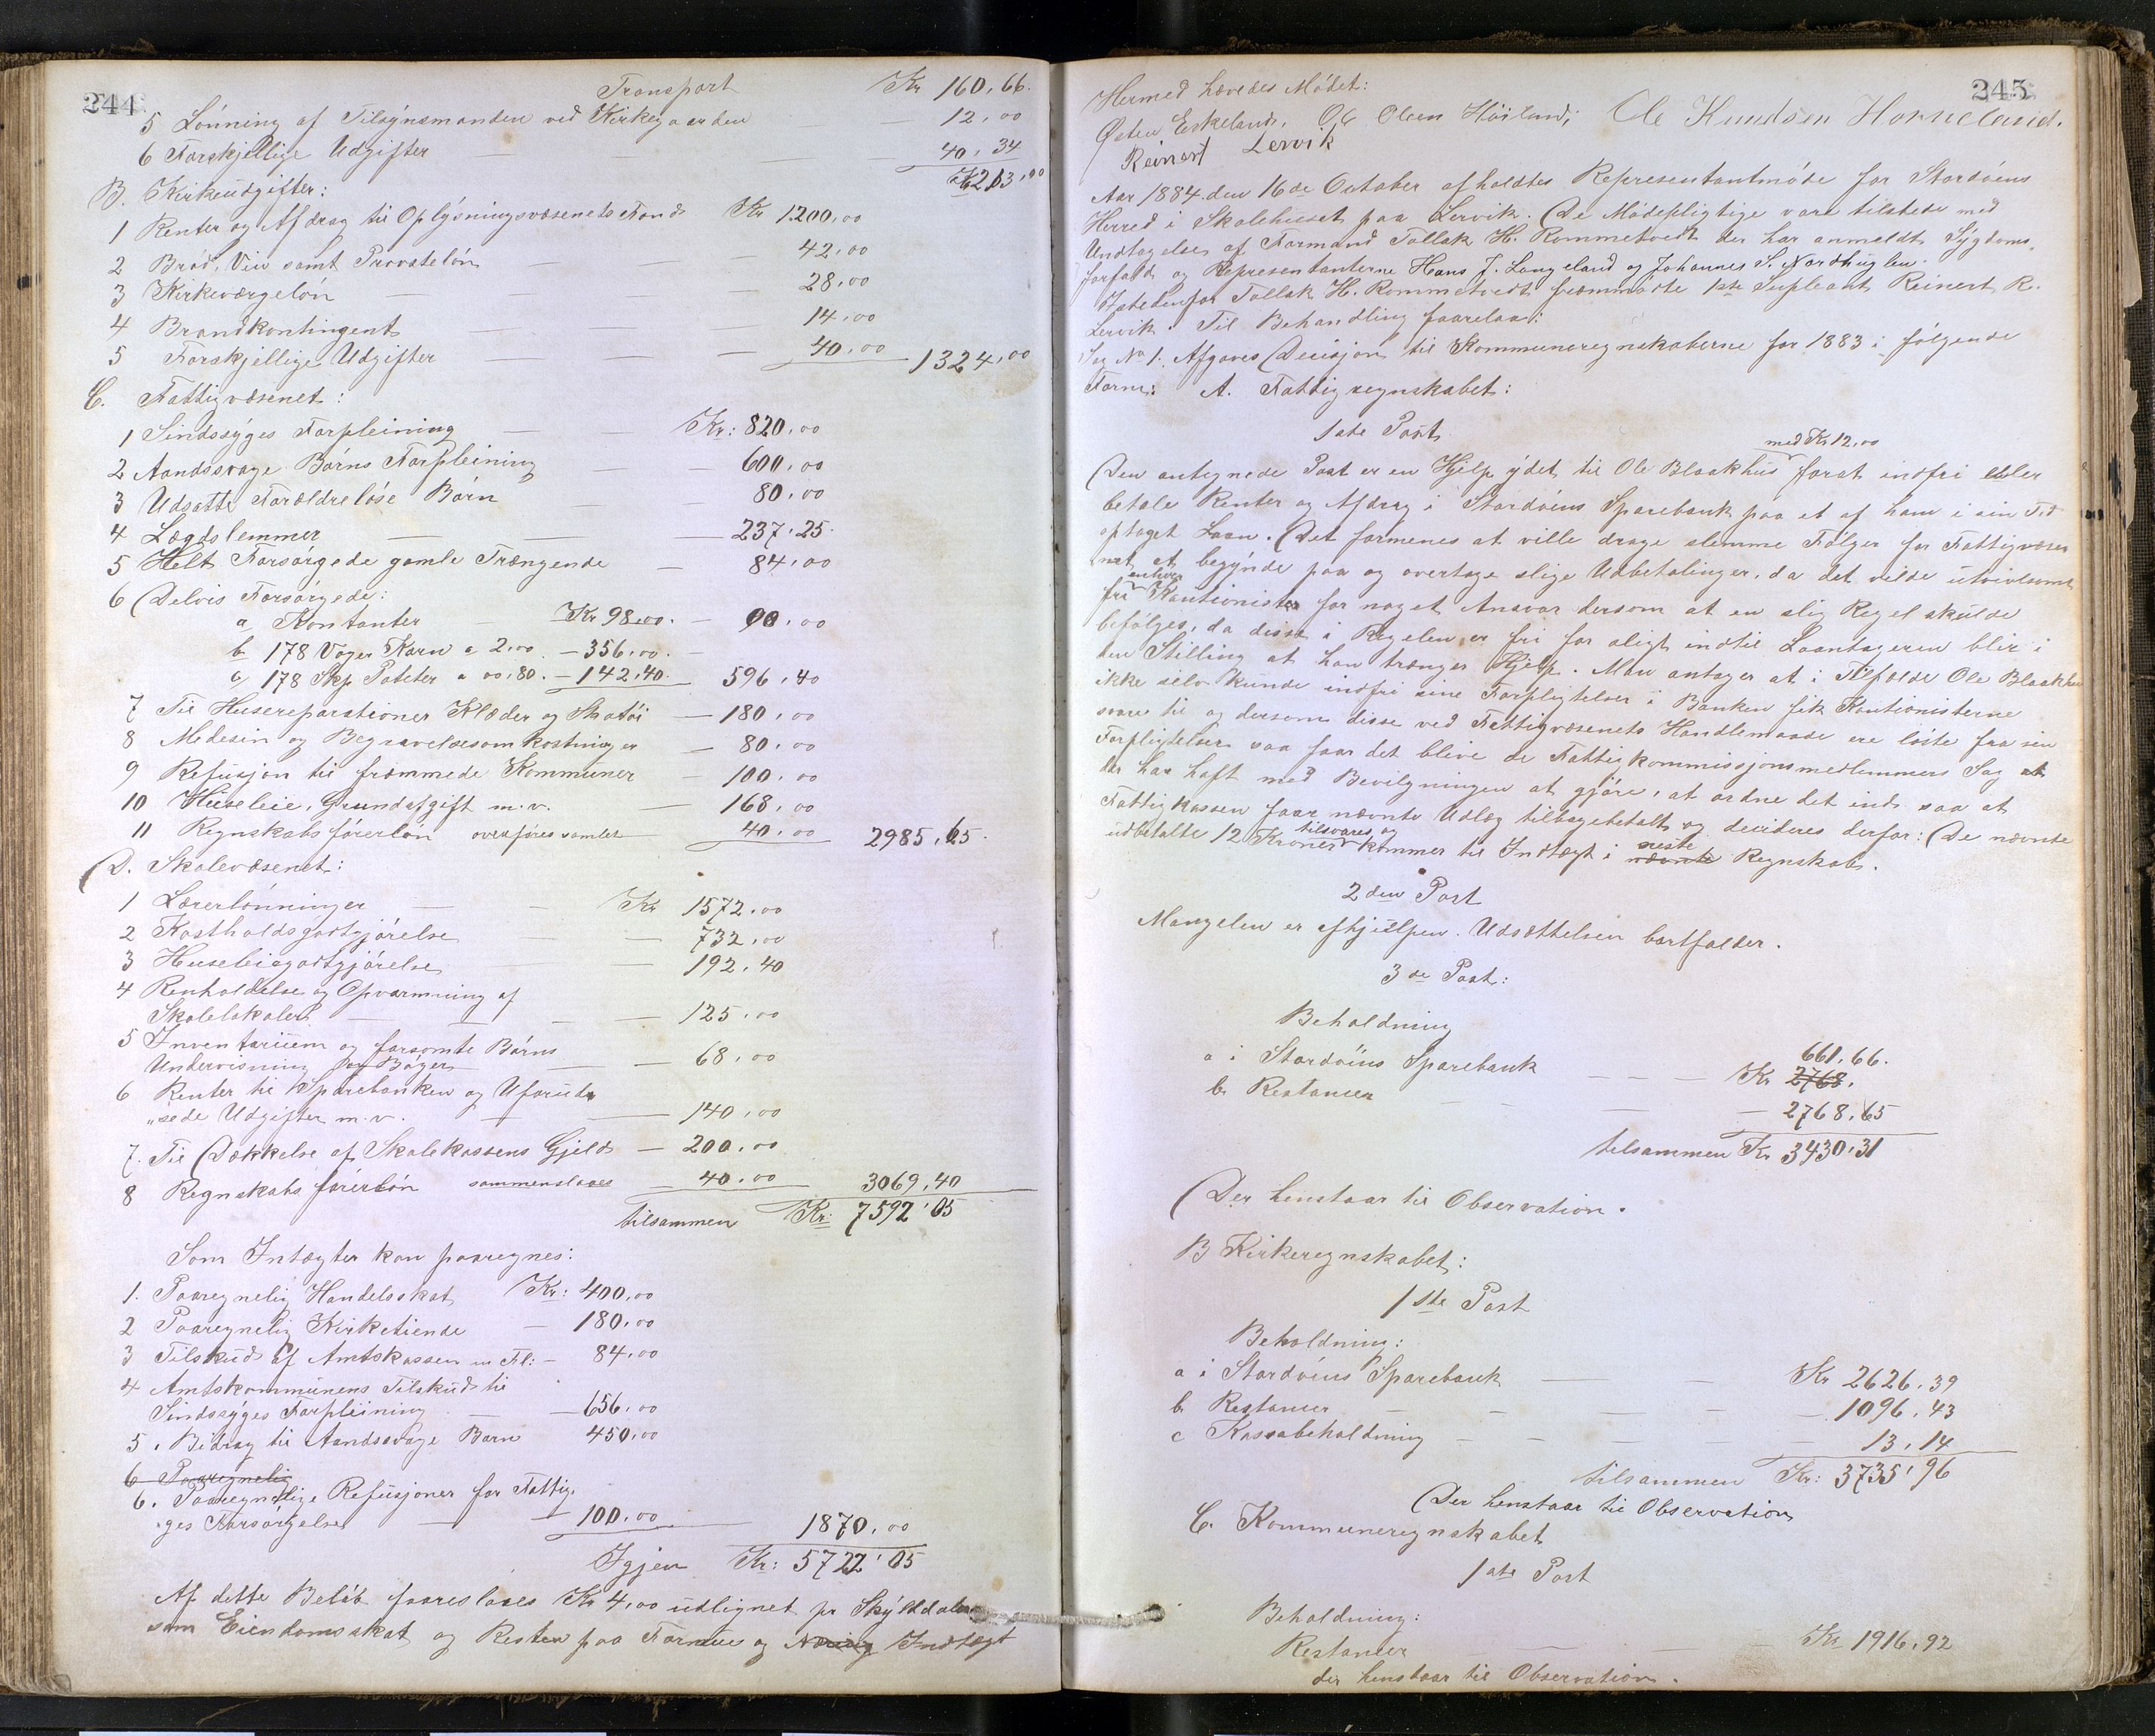 244
Transport Kr 160,66.
5 Lønning af Tilsynsmanden ved Kirkegaarden — 12,00
6 Forskjellige Udgifter — 40,34
213,00
B. Kirkeudgifter:
1 Renter og Afdrag til Oplysningsvæsenets Fond Kr 1200,00
2 Brød, Vin samt Provstelön — 42,00
3 Kirkeværgelön — 28,00
4 Brandkontingent — 14,00
5 Forskjellige Udgifter — 40,00 1324,00
C. Fattigvæsenet:
1 Sindssyges Forpleining — Kr: 820,00
2 Aandssvage Börns Forpleining — 600,00
3 Udsatte Forældrelöse Börn — 80,00
4 Lægdslemmer — 237,25
5 Helt Forsörgede gamle Trængende — 84,00
6 Delvis Forsörgede:
a Kontanter — Kr 98,00. — 00,00
b 178 Voger Korn a 2,00 — 356,00. —
c, 178 Skp Poteter a 00,80. — 142,40. 596,40
7 Til Husereparationer Klæder og Skotöi — 180,00
8 Medesin og Begravelsesomkostninger — 80,00
9 Refusjon til fræmmede Kommuner — 100,00
10 Husleie, Grundafgift m.v. — 168,00
11 Regnskabsförerlön overföres samlet 40,00 2985,65.
D. Skolevæsenet:
1 Lærerlønninger — Kr 1572,00
2 Kostholdsgodtgjörelse — 732,00
3 Husleiegodtgjörelse — 192,40
4 Renholdelse og Opvarmning af
Skolelokaler — 125,00
5 Inventarium og forsomte Börns
Undervisning og Böger — 68,00
6 Renter til Sparebanken og Uforud-
„sede Udgifter m.v. — 140,00
7. Til Dækkelse af Skolekassens Gjeld — 200,00
8 Regnskabsförerlön sammenslaaes — 40,00 3069,40
tilsammen Kr: 7592,05
Som Intægter kan paaregnes:
1. Paaregnelig Handelsskat Kr: 400,00
2 Paaregnelig Kirketiende — 180,00
3 Tilskud af Amtskassen — 84,00
4 Amtskommunens Tilskud til
Sindssyges Forpleining — 656,00
5. Bidrag til Aandssvage Barn 450,00
6 Paaregnelig
6. Paaregnelige Refusjoner for Fattig-
ges Forsörgelse — 100,00 1870,00
Igjen Kr: 5722,05
Af dette Belöb foareslaaes Kr 4,00 udlignet pr Skylddaler
som Eiendomsskat og Resten paa Formue og Næring Indtægt
245
Hermed hævedes Mödet:
Østen Eskeland, Ole Olsen Höiland; Ole Knudsen Horneland.
Reinert Lervik
Aar 1884 den 16de October afholdtes Representantmöde for Stordöens
Herred i Skolehuset paa Lervik. De Mödepligtige vare tilstede med
Undtagelse af Formand Tollak H. Rommetvedt der har anmeldt Sygdoms-
forfald og Representanterne Hans J. Langeland og Johannes S. Nordhuglen.
Istedenfor Tollak H. Rommetvedt fræmmödte 1ste Supleant Reinert R.
Lervik. Til Behandling foarelaa:
Sag No 1. Afgaves Decisjon til Kommuneregnskaberne for 1883 i følgende
Form: A. Fattigregnskabet:
1ste Post
med Kr 12,00
Den antegnede Post er en Hjelp ydet til Ole Blaakhus forat indfri eller
betale Renter og Afdrag i Stordöens Sparebank paa et af ham i sin Tid
optaget Laan. Det formenes at ville drage slemme Fölger for Fattigvæse-
net, at begynde paa og overtage slige Udbetalinger, da det vilde utvivlsomt
enhver
fri Kautionister for noget Ansvar dersom at en slig Regel skulde
befölges, da disse i Regelen er fri for sligt indtil Laantageren blir i
den Stilling at han trænger Hjelp. Man antager at i Tilfælde Ole Blaakhus
ikke selv kunde indfri sine Forpligtelser i Banken fik Kautionisterne
svare til og dersom disse ved Fattigvæsenets Handlemaade ere löste fra sin
Forpligtelser saa faar det blive de Fattigkommissjonsmedlemmers Sag at
der har haft med Bevilgningen at gjöre, at ordne det ind saa at
Fattigkassen faar nævnte Udlæg tilbagebetalt og decideres derfor: De nævnte
tilsvares og neste
udbetalte 12 Kroner kommer til Indtægt i nævnte Regnskab.
2den Post
Mangelen er afhjulpen. Udsættelsen bortfalder.
3de Post:
Beholdning
661,66.
a i Stordöens Sparebank — Kr 2768.
b. Restancer — 2768,65
tilsammen Kr 3430,31
Der henstaar til Observation.
B Kirkeregnskabet:
1ste Post
Beholdning:
a i Stordöens Sparebank — Kr 2626,39
b. Restancer — 1096,43
c Kassabeholdning — 13,14
tilsammen Kr: 3735,96
Der henstaar til Observation
C. Kommuneregnskabet
1ste Post
Beholdning:
Restancer — Kr 1916,92
der henstaar til Observation.